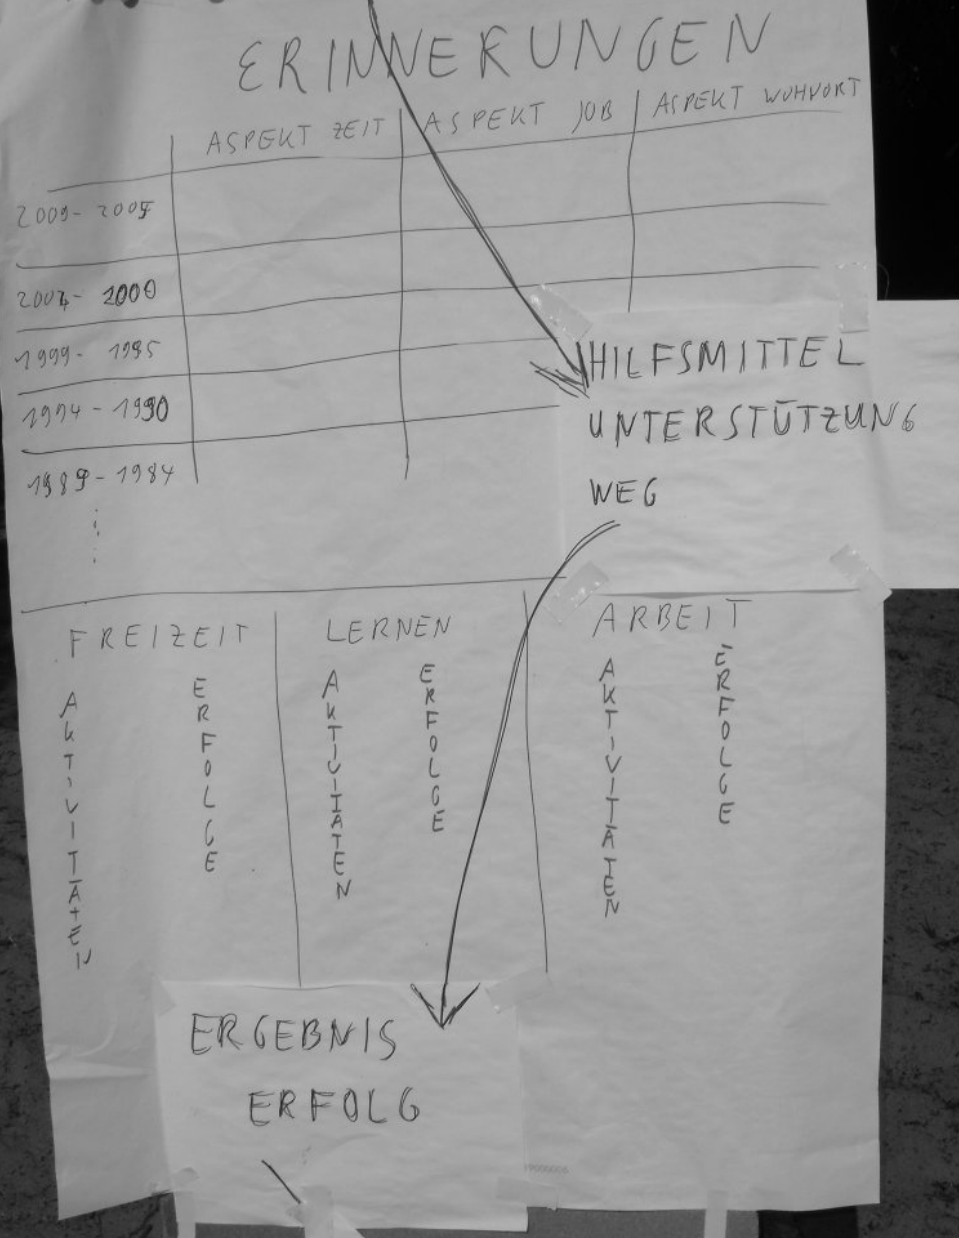 ERINNERUNGEN
ASPEKT ZEIT ASPEKT JOB ASPEKT WOHNORT
2009 - 2005
2004 - 2000
1999 - 1995
1994 - 1990
1989 - 1984
HILFSMITTEL
UNTERSTÜTZUNG
WEG
FREIZEIT LERNEN ARBEIT
AKTIVITÄTEN ERFOLGE AKTIVITÄTEN ERFOLGE AKTIVITÄTEN ERFOLGE
ERGEBNIS
ERFOLG